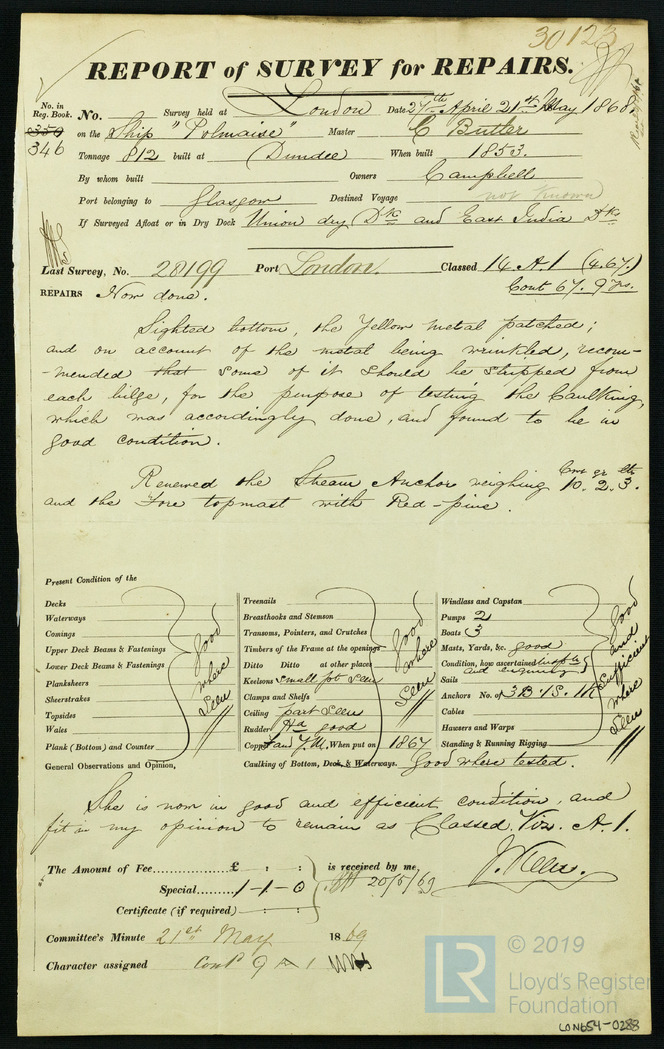 30123
REPORT of SURVEY for REPAIRS.
No. in Reg. Book. No. Survey held at London Date 27th April 21st May 1868
359 on the Ship "Polmaise" Master C Butler
346 Tonnage 812 built at Dundee When built 1853.
By whom built Owners Campbell
Port belonging to Glasgow Destined Voyage not known
If Surveyed Afloat or in Dry Dock Union dry Dk and East India Dks
Last Survey, No. 28199 Port London. Classed 14. A. 1 (4.67.)
REPAIRS Now done. Cont 67. 9 yrs.
Sighted bottom, the Yellow metal patched;
and on account of the metal being wrinkled, recom-
-mended that some of it should be stripped from
each bilge, for the purpose of testing the Caulking,
which was accordingly done, and found to be in
good condition.
Renewed the Stream Anchor weighing Cwt qr lb 10. 2. 3.
and the Fore topmast with Red-pine.
Present Condition of the
Decks
Waterways
Comings
Upper Deck Beams & Fastenings
Lower Deck Beams & Fastenings
Planksheers
Sheerstrakes
Topsides
Wales
Plank (Bottom) and Counter
good where seen
Treenails
Breasthooks and Stemson
Transoms, Pointers, and Crutches
Timbers of the Frame at the openings
Ditto Ditto at other places
Keelsons small pt seen
Clamps and Shelfs
Ceiling part seen
Rudder good
Copper and Y.M. When put on 1867
good where seen
Windlass and Capstan
Pumps 2
Boats 3
Masts, Yards, &c. good
Condition, how ascertained and enquiry
Sails
Anchors No. of 3 B. 1 S. 1 K
Cables
Hawsers and Warps
Standing & Running Rigging
Good and Sufficient where seen
General Observations and Opinion, Caulking of Bottom, Deck, & Waterways. Good where tested.
She is now in good and efficient condition, and
fit in my opinion to remain as Classed. Viz. A. 1.
The Amount of Fee £ : : is received by me,
Special 1-1-0 20/5/69
Certificate (if required) : :
Committee's Minute 21st May 1869
Character assigned Contd 9 A 1
LR © 2019
Lloyd's Register
Foundation
LON654-0288